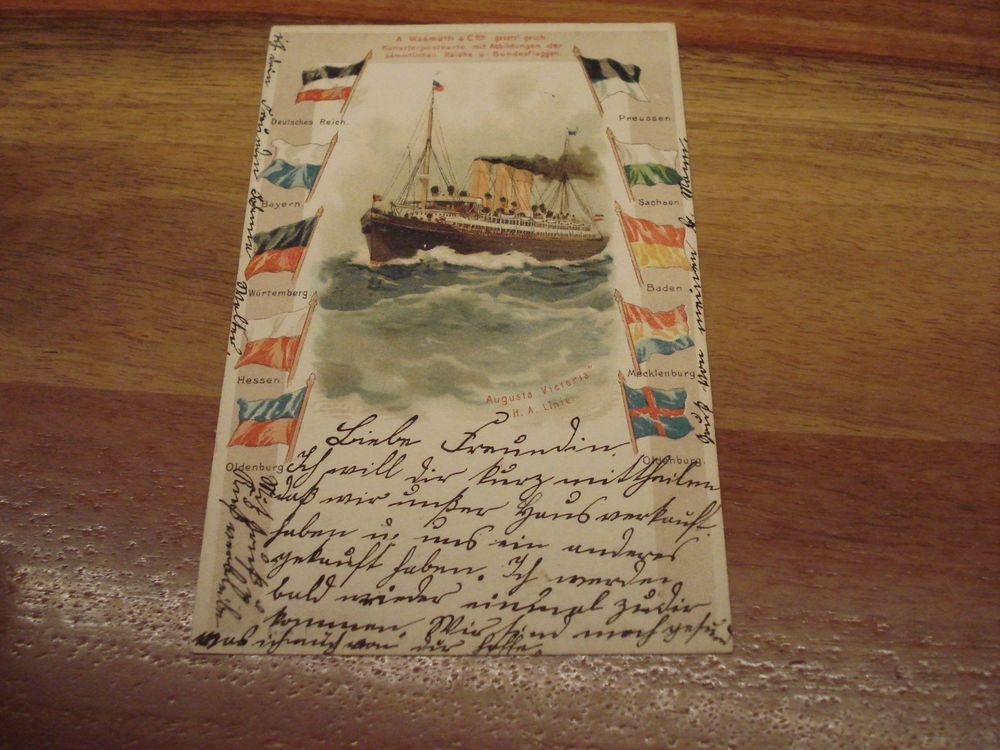 A. Wasmuth & Co. gesetzl. gesch.
Künstlerpostkarte mit Abbildungen der
sämmtlichen Reichs u. Bundesflaggen.
Deutsches Reich.
Preussen
Bayern
Sachsen
Würtemberg
Baden
Hessen
Mecklenburg
Oldenburg
Oldenburg.
"Augusta Victoria"
H. A. Linie.
Liebe Freundin.
Ich will dir kurz mittheilen
daß wir unßer Haus verkauft
haben u. uns ein anderes
gekauft haben. Ich werde
bald wieder einmal zu dir
kommen. Wir sind noch gesund
was ich auch von dir hoffe.
Mit Gruß
Gruß von meinem Mann